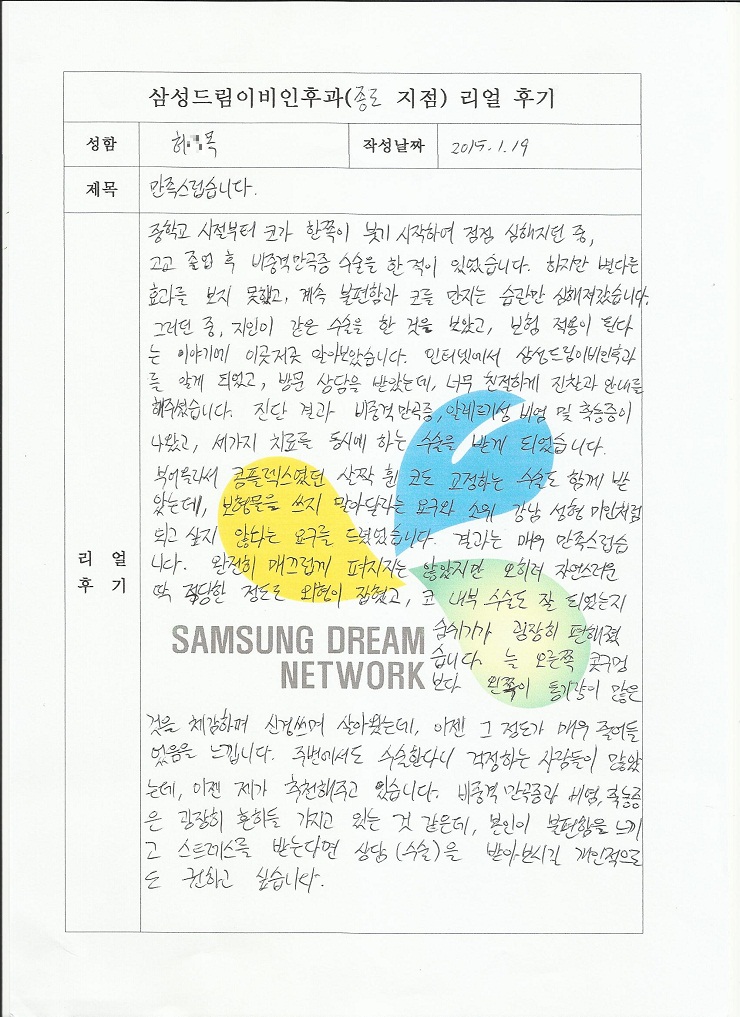 삼성드림이비인후과(종로 지점) 리얼 후기
성함 허 목 작성날짜 2015.1.19
제목 만족스럽습니다.
리얼 후기
중학교 시절부터 코가 한쪽이 붓기 시작하여 점점 심해지던 중,
고교 졸업 후 비중격만곡증 수술을 한 적이 있었습니다. 하지만 별다른
효과를 보지 못했고, 계속 불편함과 코를 만지는 습관만 심해져갔습니다.
그러던 중, 지인이 같은 수술을 한 것을 보았고, 보험 적용이 된다
는 이야기에 이곳저곳 알아보았습니다. 인터넷에서 삼성드림이비인후과
를 알게 되었고, 방문 상담을 받았는데, 너무 친절하게 진찰과 안내를
해주셨습니다. 진단 결과 비중격만곡증, 알레르기성 비염 및 축농증이
나왔고, 세가지 치료를 동시에 하는 수술을 받게 되었습니다.
부어올라서 콤플렉스였던 살짝 휜 코도 교정하는 수술도 함께 받
았는데, 보형물을 쓰지 말아달라는 요구와 소위 강남 성형 미인처럼
되고 싶지 않다는 요구를 드렸었습니다. 결과는 매우 만족스럽습
니다. 완전히 매끄럽게 펴지지는 않았지만 오히려 자연스러운
딱 적당한 정도로 외형이 잡혔고, 코 내부 수술도 잘 되었는지
숨쉬기가 굉장히 편해졌
습니다. 늘 오른쪽 콧구멍
보다 왼쪽이 통기량이 많은
SAMSUNG DREAM
NETWORK
것을 체감하며 신경쓰며 살아왔는데, 이젠 그 정도가 매우 줄어들
었음을 느낍니다. 주변에서도 수술한다니 걱정하는 사람들이 많았
는데, 이젠 제가 추천해주고 있습니다. 비중격만곡증과 비염, 축농증
은 굉장히 흔히들 가지고 있는 것 같은데, 본인이 불편함을 느끼
고 스트레스를 받는다면 상담(수술)을 받아보시길 개인적으로
도 권하고 싶습니다.